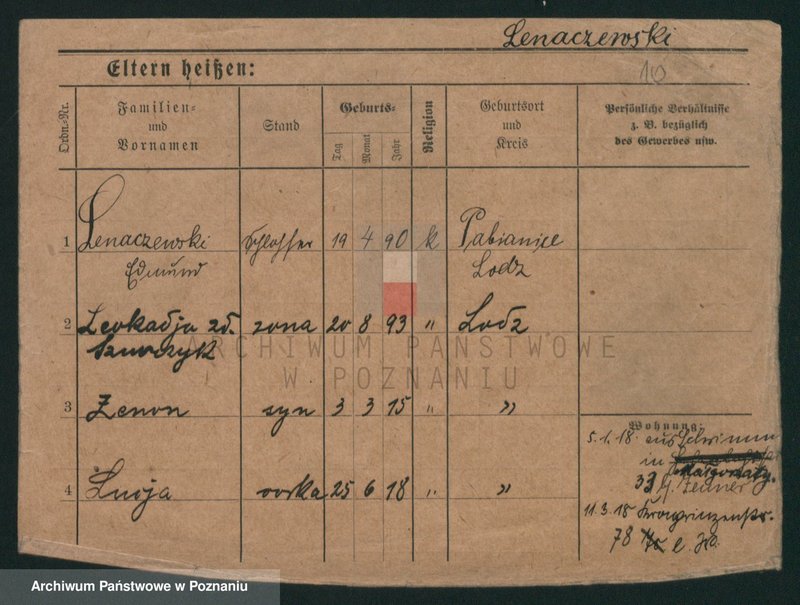 Lenaczewski
10
Eltern heißen:
Ordn.-Nr.
Familien-
und
Vornamen
Stand
Geburts-
Tag
Monat
Jahr
Religion
Geburtsort
und
Kreis
Persönliche Verhältnisse
z. B. bezüglich
des Gewerbes usw.
1 Lenaczewski Schlosser 19 4 90 k Pabianice
Edmund Lodz
2 Leokadja zd. zona 20 8 93 " Lodz
ARCHIWUM PAŃSTWOWE
W POZNANIU
3 Zenon syn 3 3 15 " "
Wohnung:
5.1.18. aus
in
33
4 Lucja corka 25 6 18 " "
11.3.18 Kronprinzenstr.
78
Archiwum Państwowe w Poznaniu